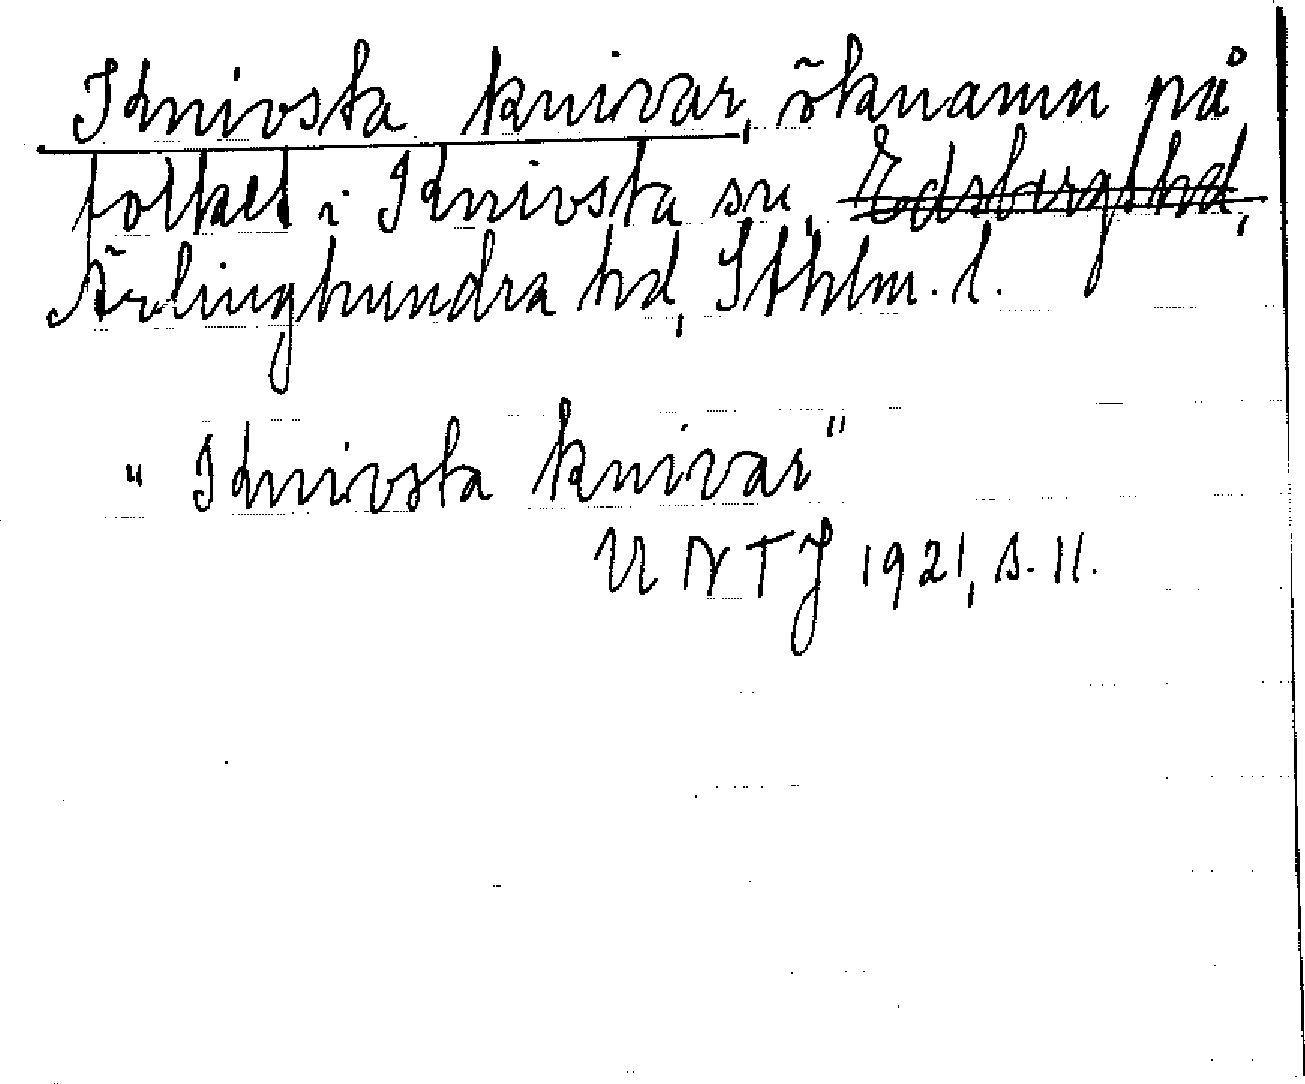 Knivsta knivar, öknamn på
folket i Knivsta sn, Edsbergs hd,
Ärlinghundra hd, Sthlm. l.
"Knivsta knivar"
UNTJ 1921, s. 11.